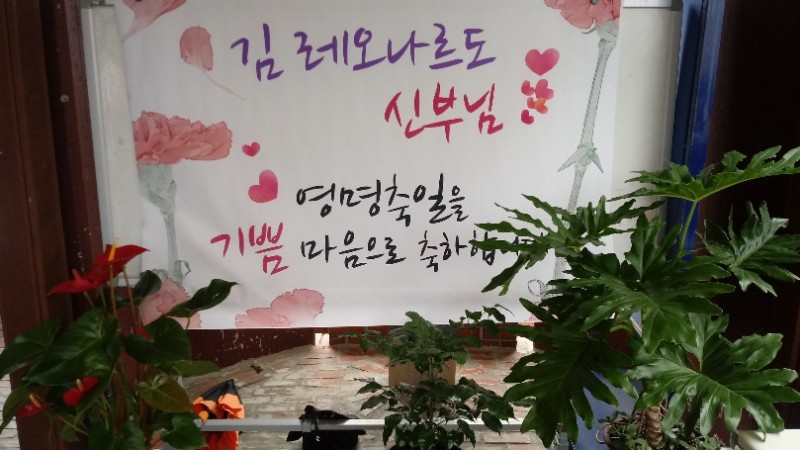 김 레오나르도
신부님
영명축일을
기쁨 마음으로 축하합니다